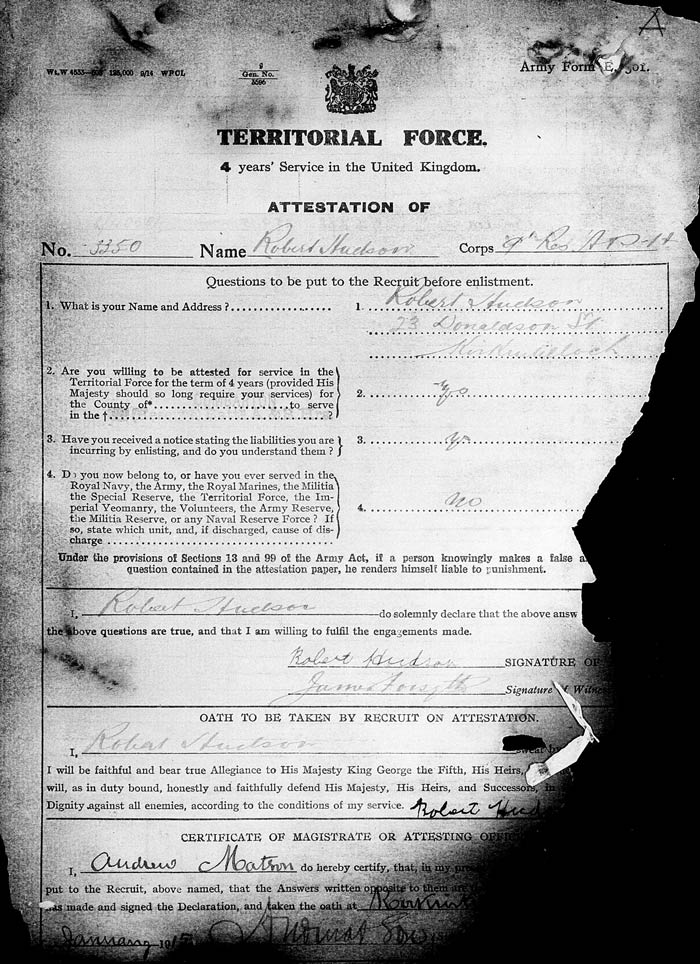 A
Wt. W 4555—605 125,000 9/14 WPCL
9
Gen. No.
5596
Army Form E. 501.
TERRITORIAL FORCE.
4 years' Service in the United Kingdom.
ATTESTATION OF
No. 3350 Name Robert Hudson Corps 9th Res. A & S H
Questions to be put to the Recruit before enlistment.
1. What is your Name and Address ? 1. Robert Hudson
23 Donaldson St
Kirkintilloch
2. Are you willing to be attested for service in the
Territorial Force for the term of 4 years (provided His
Majesty should so long require your services) for
the County of* to serve
in the † ?
2. Yes
3. Have you received a notice stating the liabilities you are
incurring by enlisting, and do you understand them ?
3. Yes
4. Do you now belong to, or have you ever served in the
Royal Navy, the Army, the Royal Marines, the Militia
the Special Reserve, the Territorial Force, the Im-
perial Yeomanry, the Volunteers, the Army Reserve,
the Militia Reserve, or any Naval Reserve Force ? If
so, state which unit, and, if discharged, cause of dis-
charge
4. No
Under the provisions of Sections 13 and 99 of the Army Act, if a person knowingly makes a false a
question contained in the attestation paper, he renders himself liable to punishment.
I, Robert Hudson do solemnly declare that the above answ
the above questions are true, and that I am willing to fulfil the engagements made.
Robert Hudson SIGNATURE OF
James Forsyth Signature of Witness
OATH TO BE TAKEN BY RECRUIT ON ATTESTATION.
I, Robert Hudson swear by
I will be faithful and bear true Allegiance to His Majesty King George the Fifth, His Heirs,
will, as in duty bound, honestly and faithfully defend His Majesty, His Heirs, and Successors, in
Dignity against all enemies, according to the conditions of my service. Robert Hud
CERTIFICATE OF MAGISTRATE OR ATTESTING OFFIC
I, Andrew Matson do hereby certify, that, in my pre
put to the Recruit, above named, that the Answers written opposite to them are
has made and signed the Declaration, and taken the oath at Kirkint
January 1915